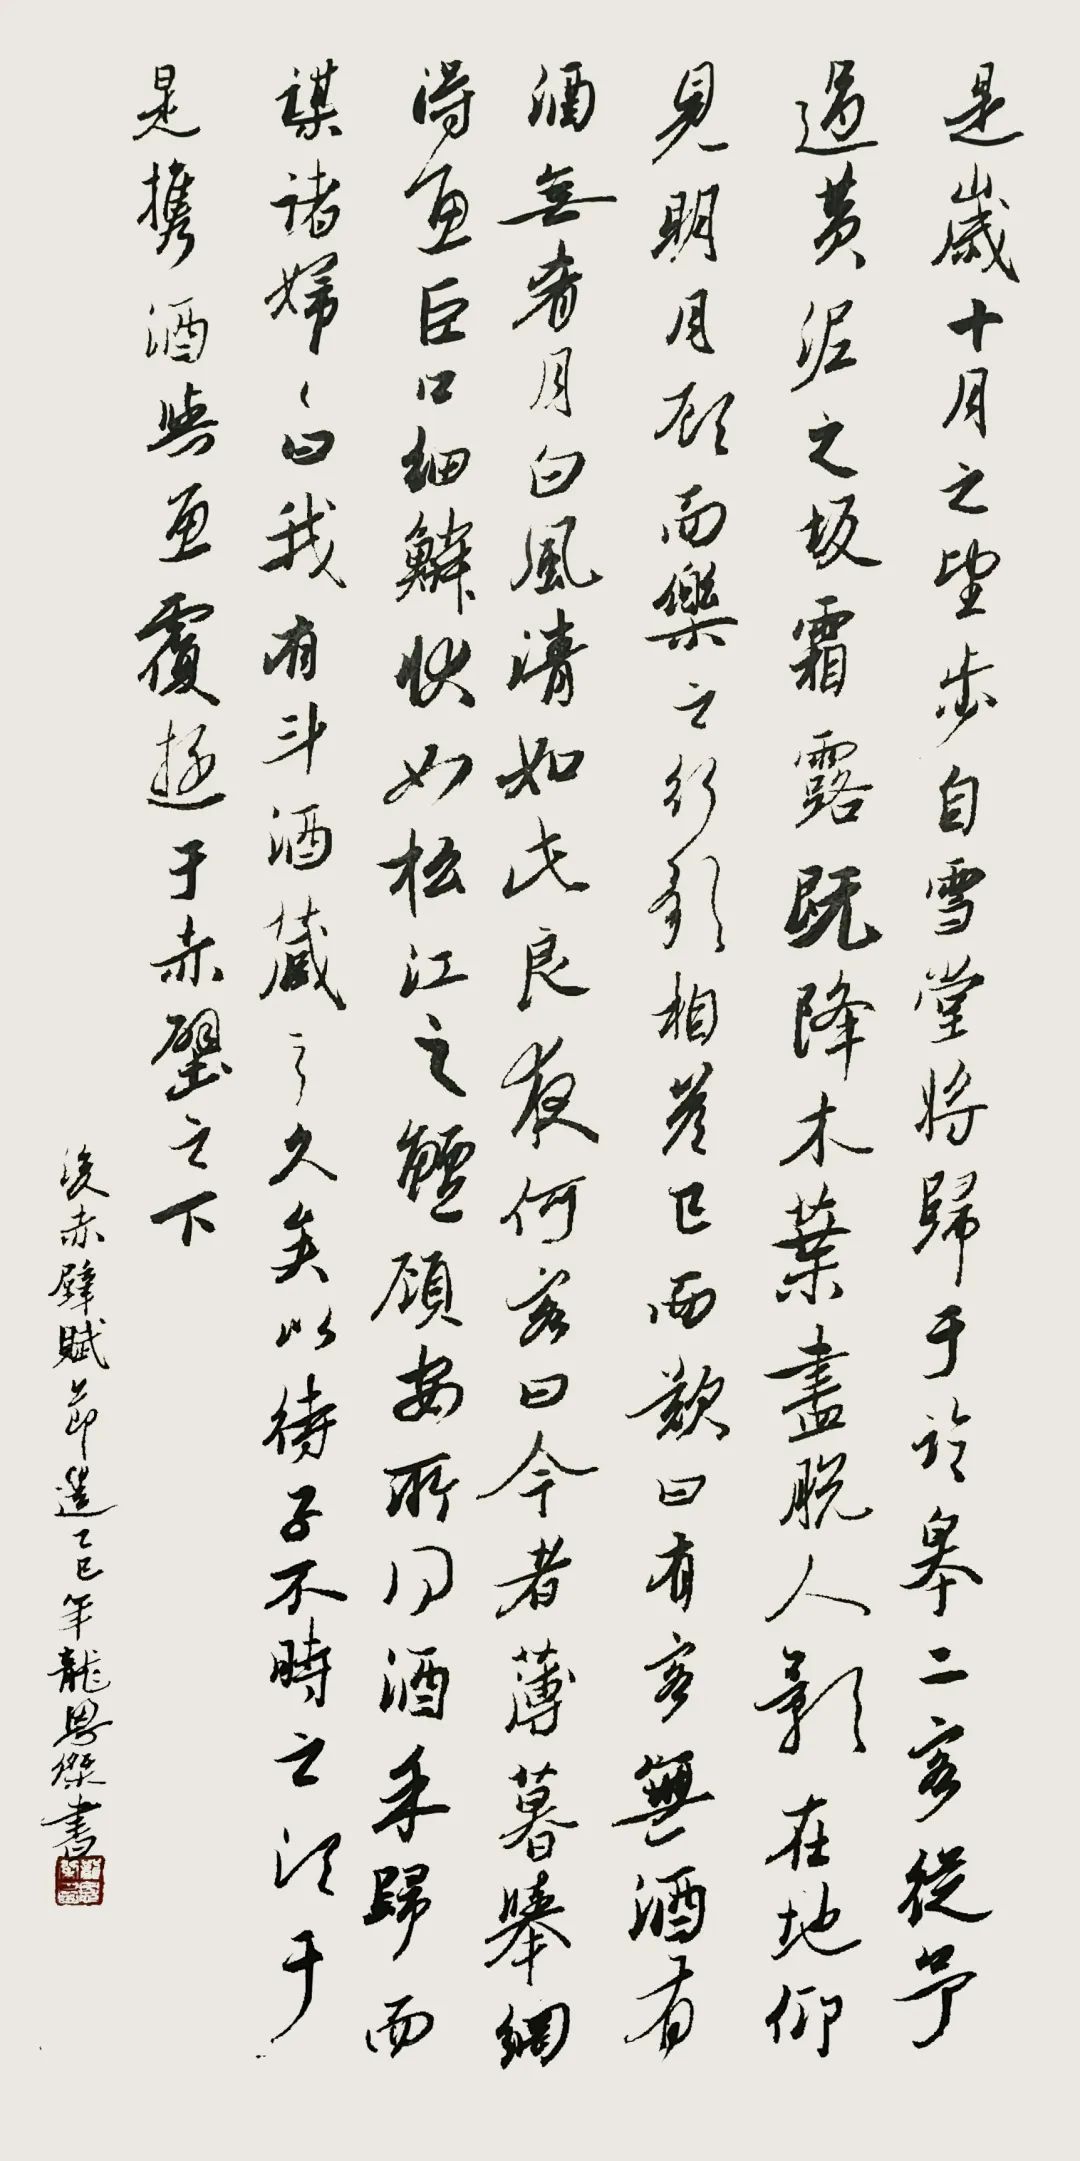 是歲十月之望步自雪堂將歸于臨皋二客從予
過黄泥之坂霜露既降木葉盡脱人影在地仰
見明月顧而樂之行歌相答已而歎曰有客無酒有
酒無肴月白風清如此良夜何客曰今者薄暮舉網
得魚巨口細鱗狀如松江之鱸顧安所得酒乎歸而
謀諸婦〻曰我有斗酒藏之久矣以待子不時之須于
是携酒與魚覆遊于赤壁之下
後赤壁賦節選乙巳年龍恩傑書